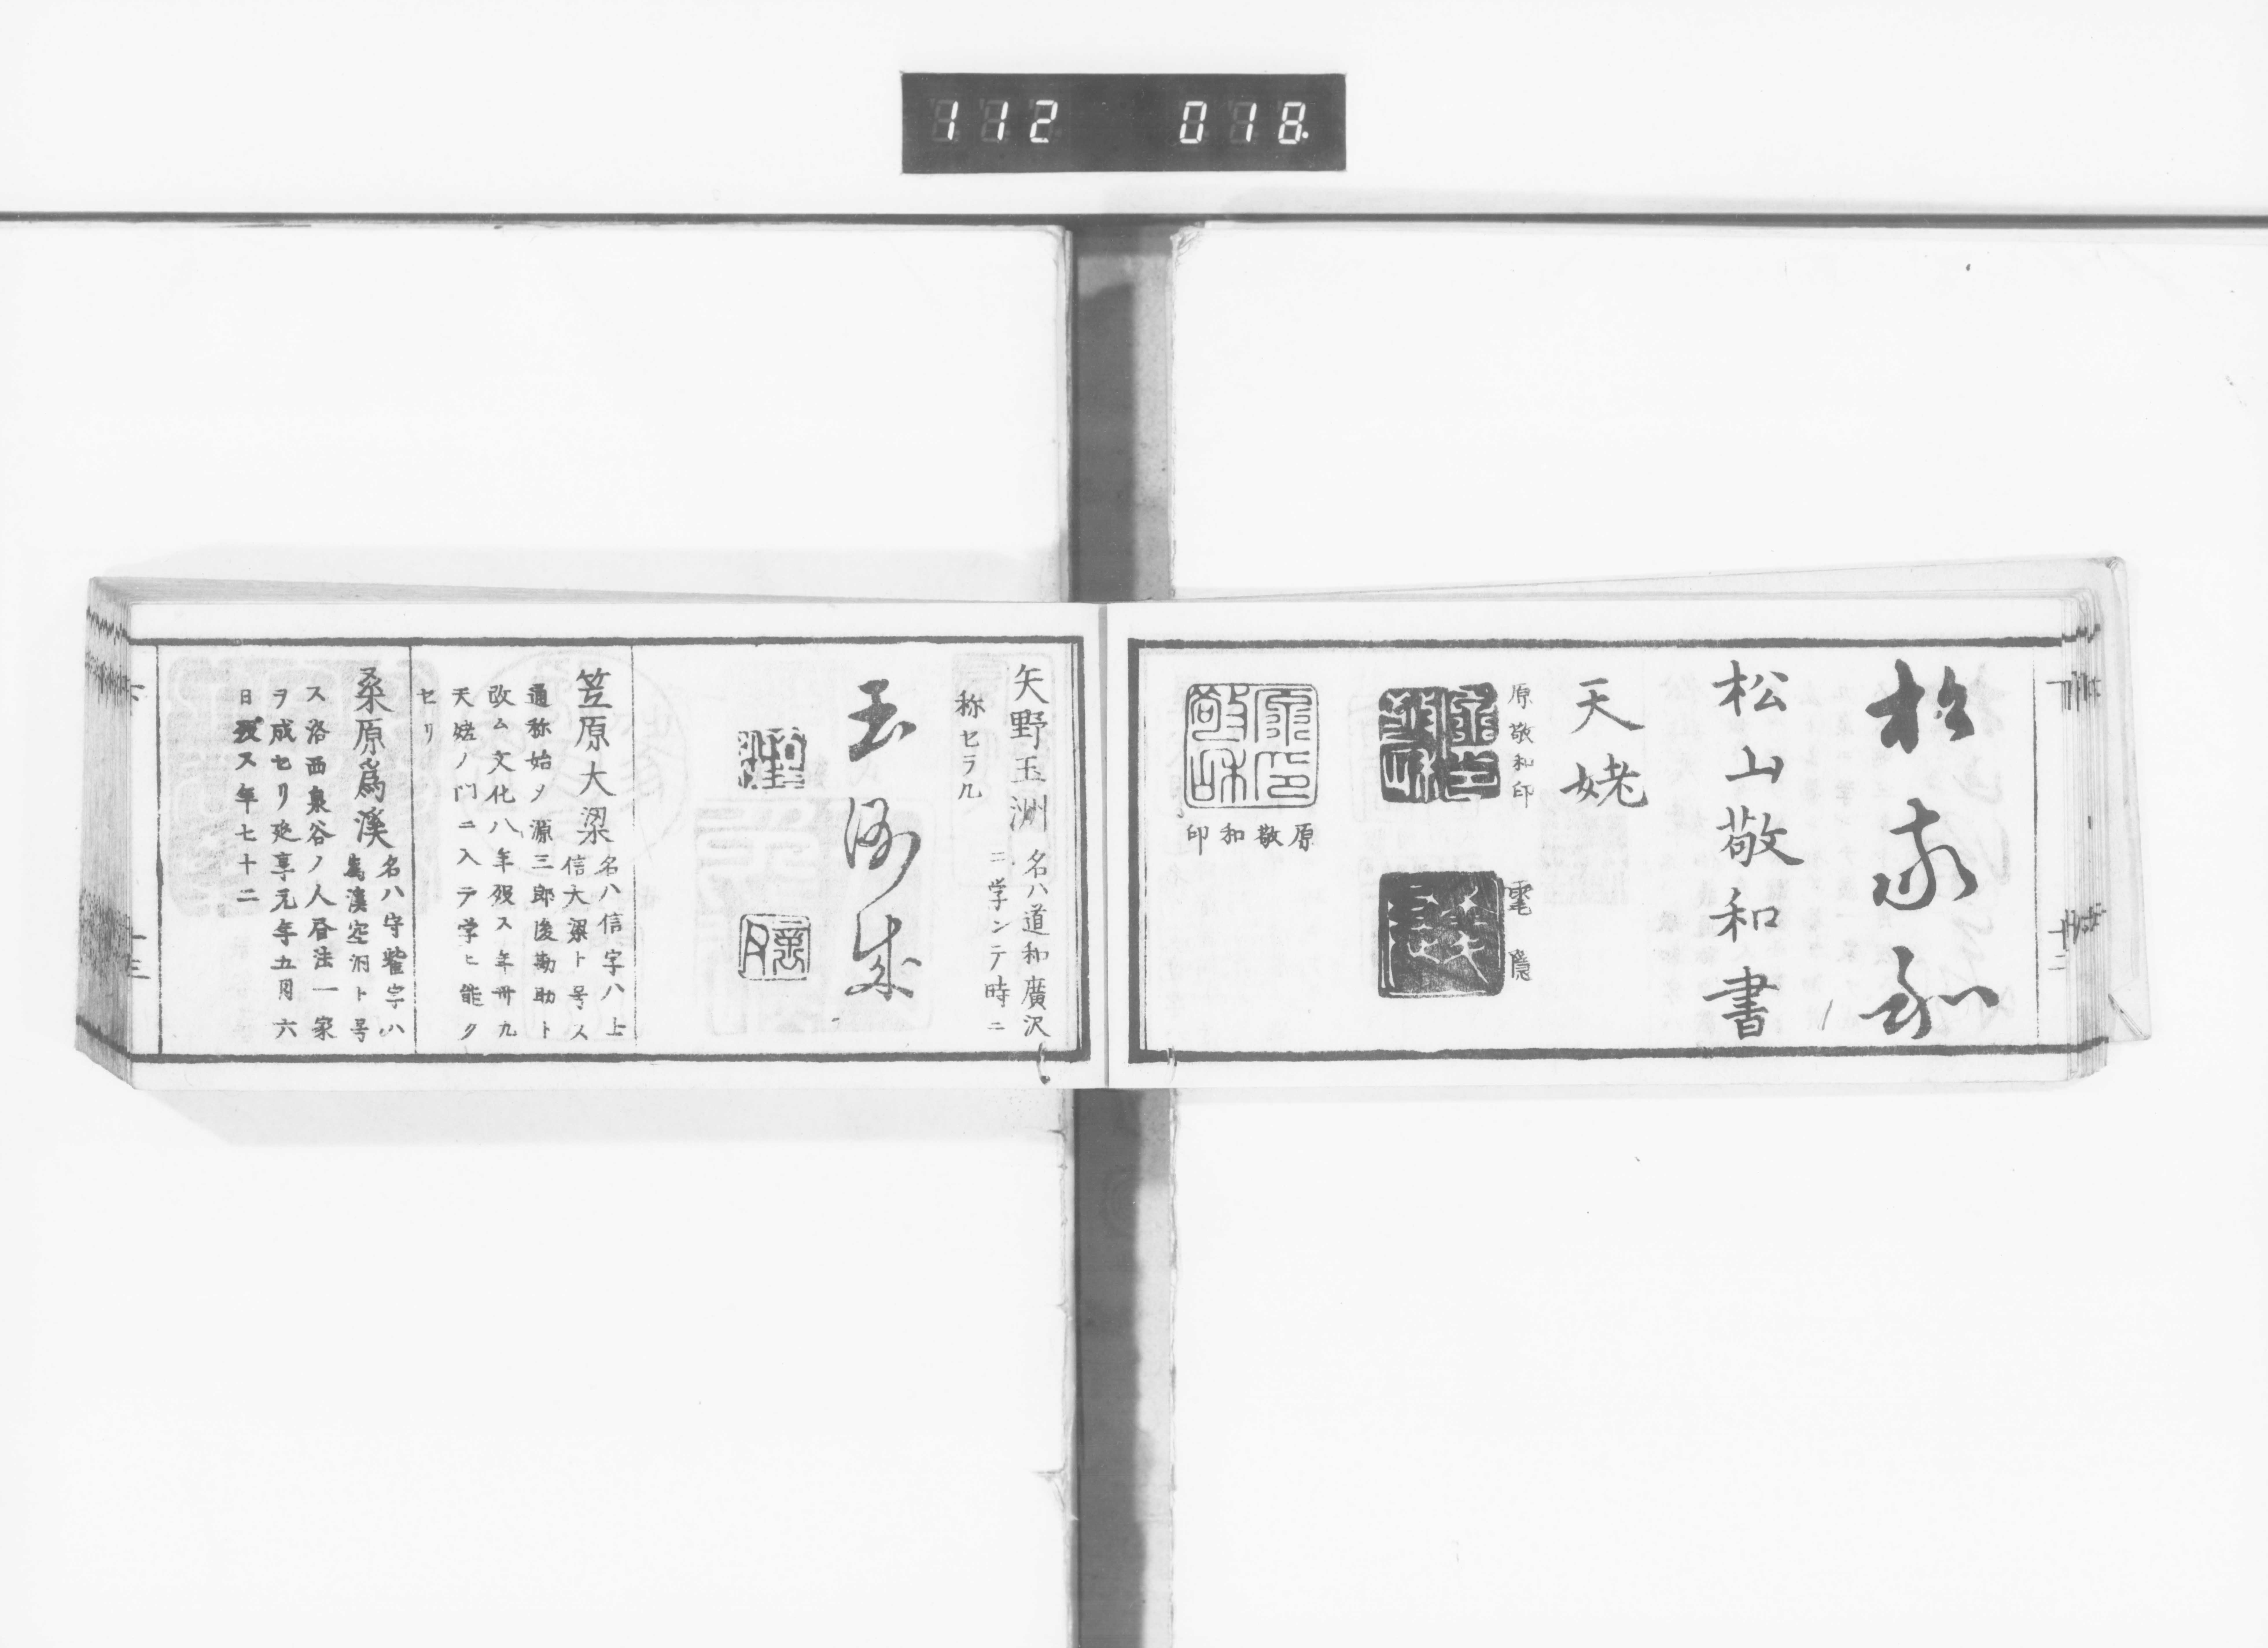 112 018
松敬和
松山敬和書
天姥
原敬和印
電隠
原敬和印
矢野玉洲
名ハ道和廣沢
ニ学ンテ時ニ
称セラル
玉洲
笠原大梁
名ハ信字ハ上
信大梁ト号ス
通称始メ源三郎後勘助ト
改ム文化八年歿ス年卅九
天姥ノ門ニ入テ学ヒ能ク
セリ
桒原為溪
名ハ守雌字ハ
為溪空洞ト号
ス洛西泉谷ノ人昏法一家
ヲ成セリ延享元年五月六
日歿ス年七十二
十三